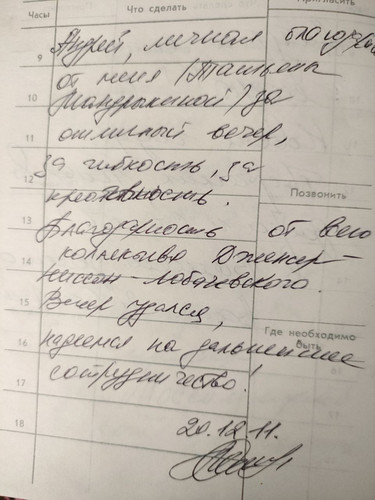 Часы Что сделать Пригласить
9 Андрей, личная благодарность
от меня (Татьяны
10 Мандрыкиной) за
11 отличный вечер,
12 за гибкость, за
креативность.
Позвонить
13 Благодарность от всего
14 коллектива Дженсер-
Ниссан-Лобачевского.
15 Вечер удался,
Где необходимо быть
16 надеемся на дальнейшее
17 сотрудничество!
18 20.12.11.